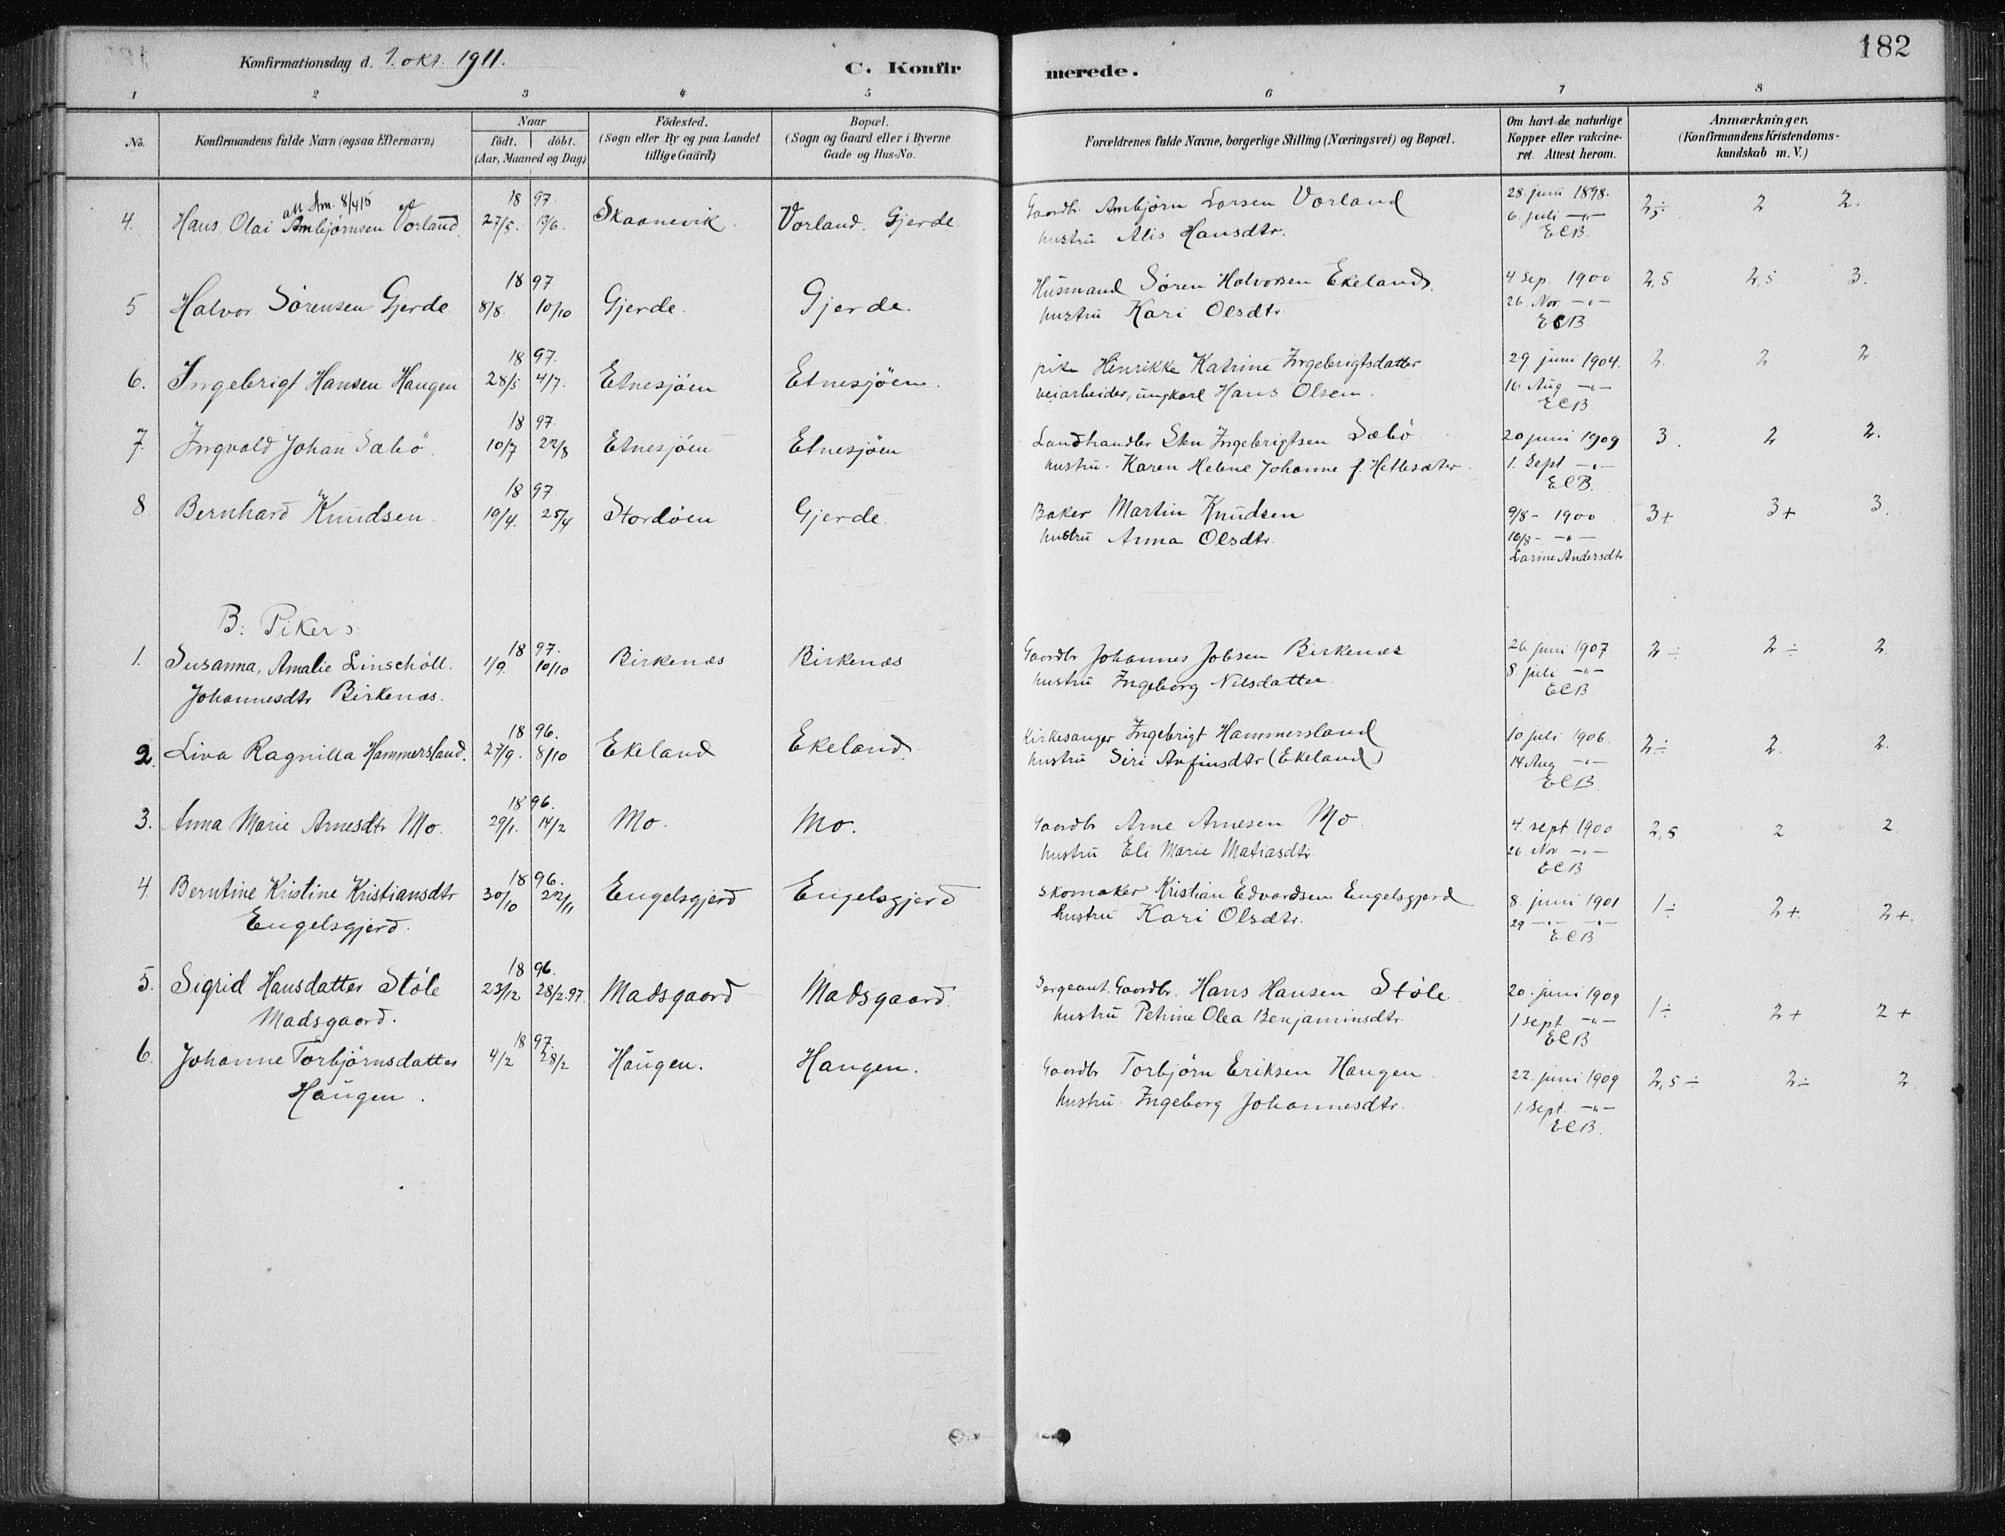 Konfirmationsdag d. 1. okt. 1911. C. Konfirmerede. 182
1 2 3 4 5 6 7 8
No. Konfirmandens fulde Navn (ogsaa Efternavn) Naar födt. döbt. (Aar, Maaned og Dag) Födested. (Sogn eller By og paa Landet tillige Gaard) Bopæl. (Sogn og Gaard eller i Byerne Gade og Hus-No. Forældrenes fulde Navne, borgerlige Stilling (Næringsvei) og Bopæl. Om havt de naturlige Kopper eller vakcineret. Attest herom. Anmærkninger. (Konfirmandens Kristendomskundskab m. V.)
att. Am. 8/4 15 18 97.
4. Hans Olai Ambjørnsen Vorland. 27/5. 13/6. Skaanevik. Vorland. Gjerde. Gaardbr. Ambjørn Larsen Vorland 28. juni 1898. 2÷ 2 2.
hustru Alis Hansdtr. 6. juli -"-
ECB.
18 97
5 Halvor Sørensen Gjerde 8/8. 10/10 Gjerde. Gjerde. Husmand Søren Halvorsen Ekeland. 4 Sep. 1900 2,5 2,5 3.
hustru Kari Olsdtr. 26. Nov -"-
ECB
18 97.
6. Ingebrigt Hansen Haugen 28/5 4/7. Etnesjöen Etnesjöen. pike Henrikke Katrine Ingebrigtsdatter 29 juni 1904. 2. 2 2
veiarbeider, ungkarl Hans Olsen. 16 Aug -"-
ECB
18 97.
7. Ingvald Johan Sæbö. 10/7 22/8 Etnesjöen Etnesjöen Landhandler Sten Ingebrigtsen Sæbö 20 juni 1909 3. 2 2.
hustru. Karen Helene Johanne f. Hettesæter. 1. Sept -"-
ECB.
18 97
8 Bernhard Knudsen. 19/4. 25/4 Stordöen Gjerde. Baker Martin Knudsen 9/8 - 1900 3+ 3+ 3.
hustru Anna Olsdtr. 10/8 - -"-
Larine Andersdtr
B: Piker:
18 97.
1. Susanna, Amalie Linschöll. 1/9. 10/10 Birkenæs Birkenæs Gaardbr Johannes Jobsen Birkenæs 26 juni 1907. 2÷ 2÷ 2
Johannesdtr Birkenæs. hustru Ingeborg Nilsdatter. 8 juli -"-
ECB
18 96.
2. Liva Ragnilla Hammersland. 27/9. 8/10 Ekeland Ekeland. Kirkesanger Ingebrigt Hammersland 10 juli 1906. 2÷ 2. 2.
hustru Siri Arfinsdtr (Ekeland) 14 Aug -"-
ECB
18 96.
3. Anna Marie Arnesdtr Mo. 29/1. 14/2 Mo. Mo. Gaardbr Arne Arnesen Mo 4. sept 1900 2,5 2 2
hustru Eli Marie Matiasdtr. 26. Nov. -"-
ECB
18 96.
4. Berntine Kristine Kristiansdtr 30/10 22/11 Engelsgjerd Engelsgjerd skomaker Kristian Edvardsen Engelsgjerd 8. juni 1901 1÷ 2+ 2+.
Engelsgjerd. hustru Kari Olsdtr. 29 -"- -"-
ECB
18 96.
5. Sigrid Hansdatter Støle 23/12 28/2 97. Madsgaard Madsgaard. Sergeant. Gaardbr. Hans Hansen Støle. 20. juni 1909 1÷ 2+ 2+
Madsgaard. hustru Petrine Olea Benjaminsdtr. 1 sept -"-
ECB
18 97.
6. Johanne Torbjørnsdatter 4/2 28/2 Haugen. Haugen. Gaardbr Torbjørn Eriksen Haugen. 22. juni 1909 2,5÷ 2÷ 2.
Haugen. hustru. Ingeborg Johannesdtr. 1. sept. -"-
ECB.